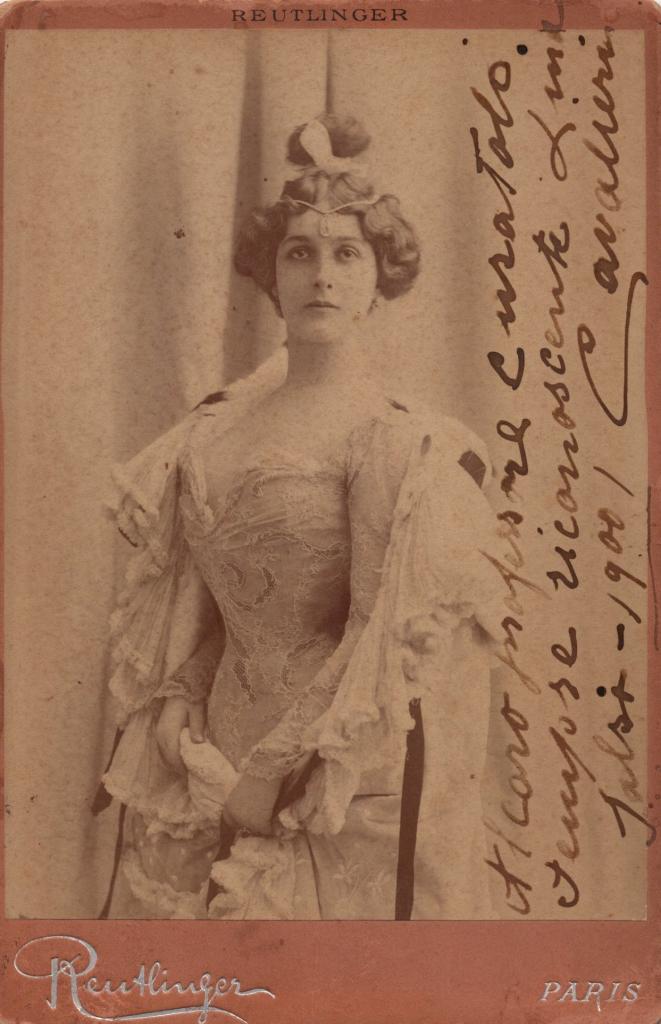 REUTLINGER
Al caro professore Curatolo.
sempre riconoscente Lina
1900 / Cavalieri
Reutlinger
PARIS